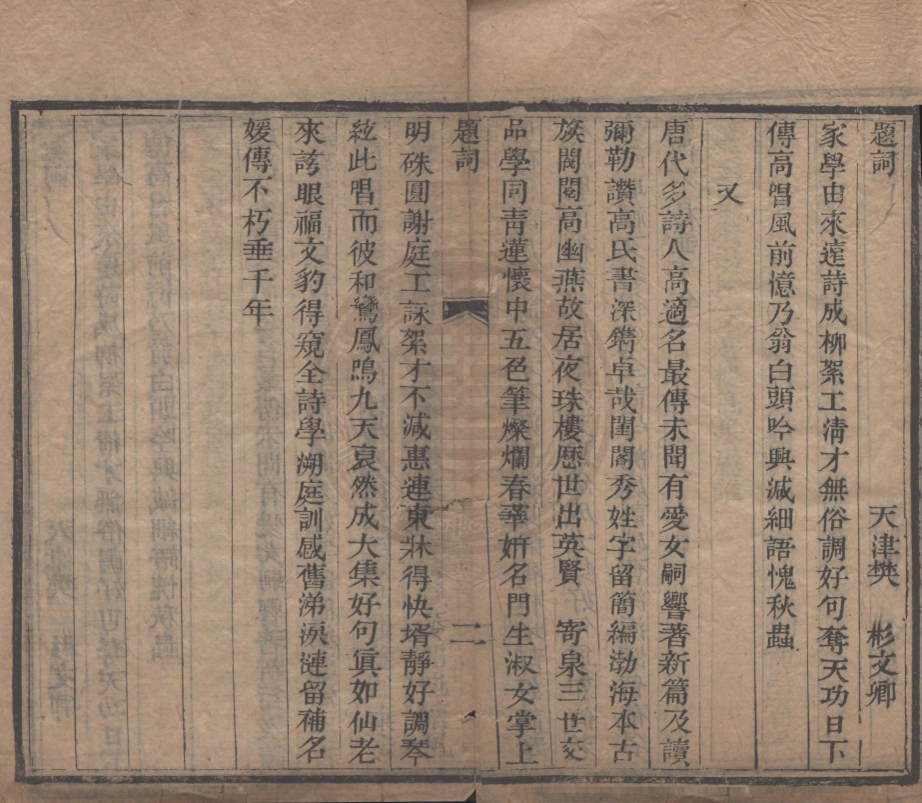 題詞 天津樊 彬文卿
家學由來遠詩成柳絮工清才無俗調好句奪天功日下
傳高唱風前憶乃翁白頭吟興減細語愧秋蟲
又
唐代多詩人高適名最傳未聞有愛女嗣響著新篇及讀
彌勒讚高氏書深鐫卓哉閨閣秀姓字留簡編渤海本古
族閥閱高幽燕故居夜珠樓歷世出英賢 寄泉三世交
品學同青蓮懷中五色筆燦爛春華妍名門生淑女掌上
題詞 二
明珠圓謝庭工詠絮才不減惠連東牀得快壻靜好調琴
絃此唱而彼和鸞鳳鳴九天裒然成大集好句眞如仙老
來誇眼福文豹得窺全詩學溯庭訓感舊涕淚漣留補名
媛傳不朽垂千年